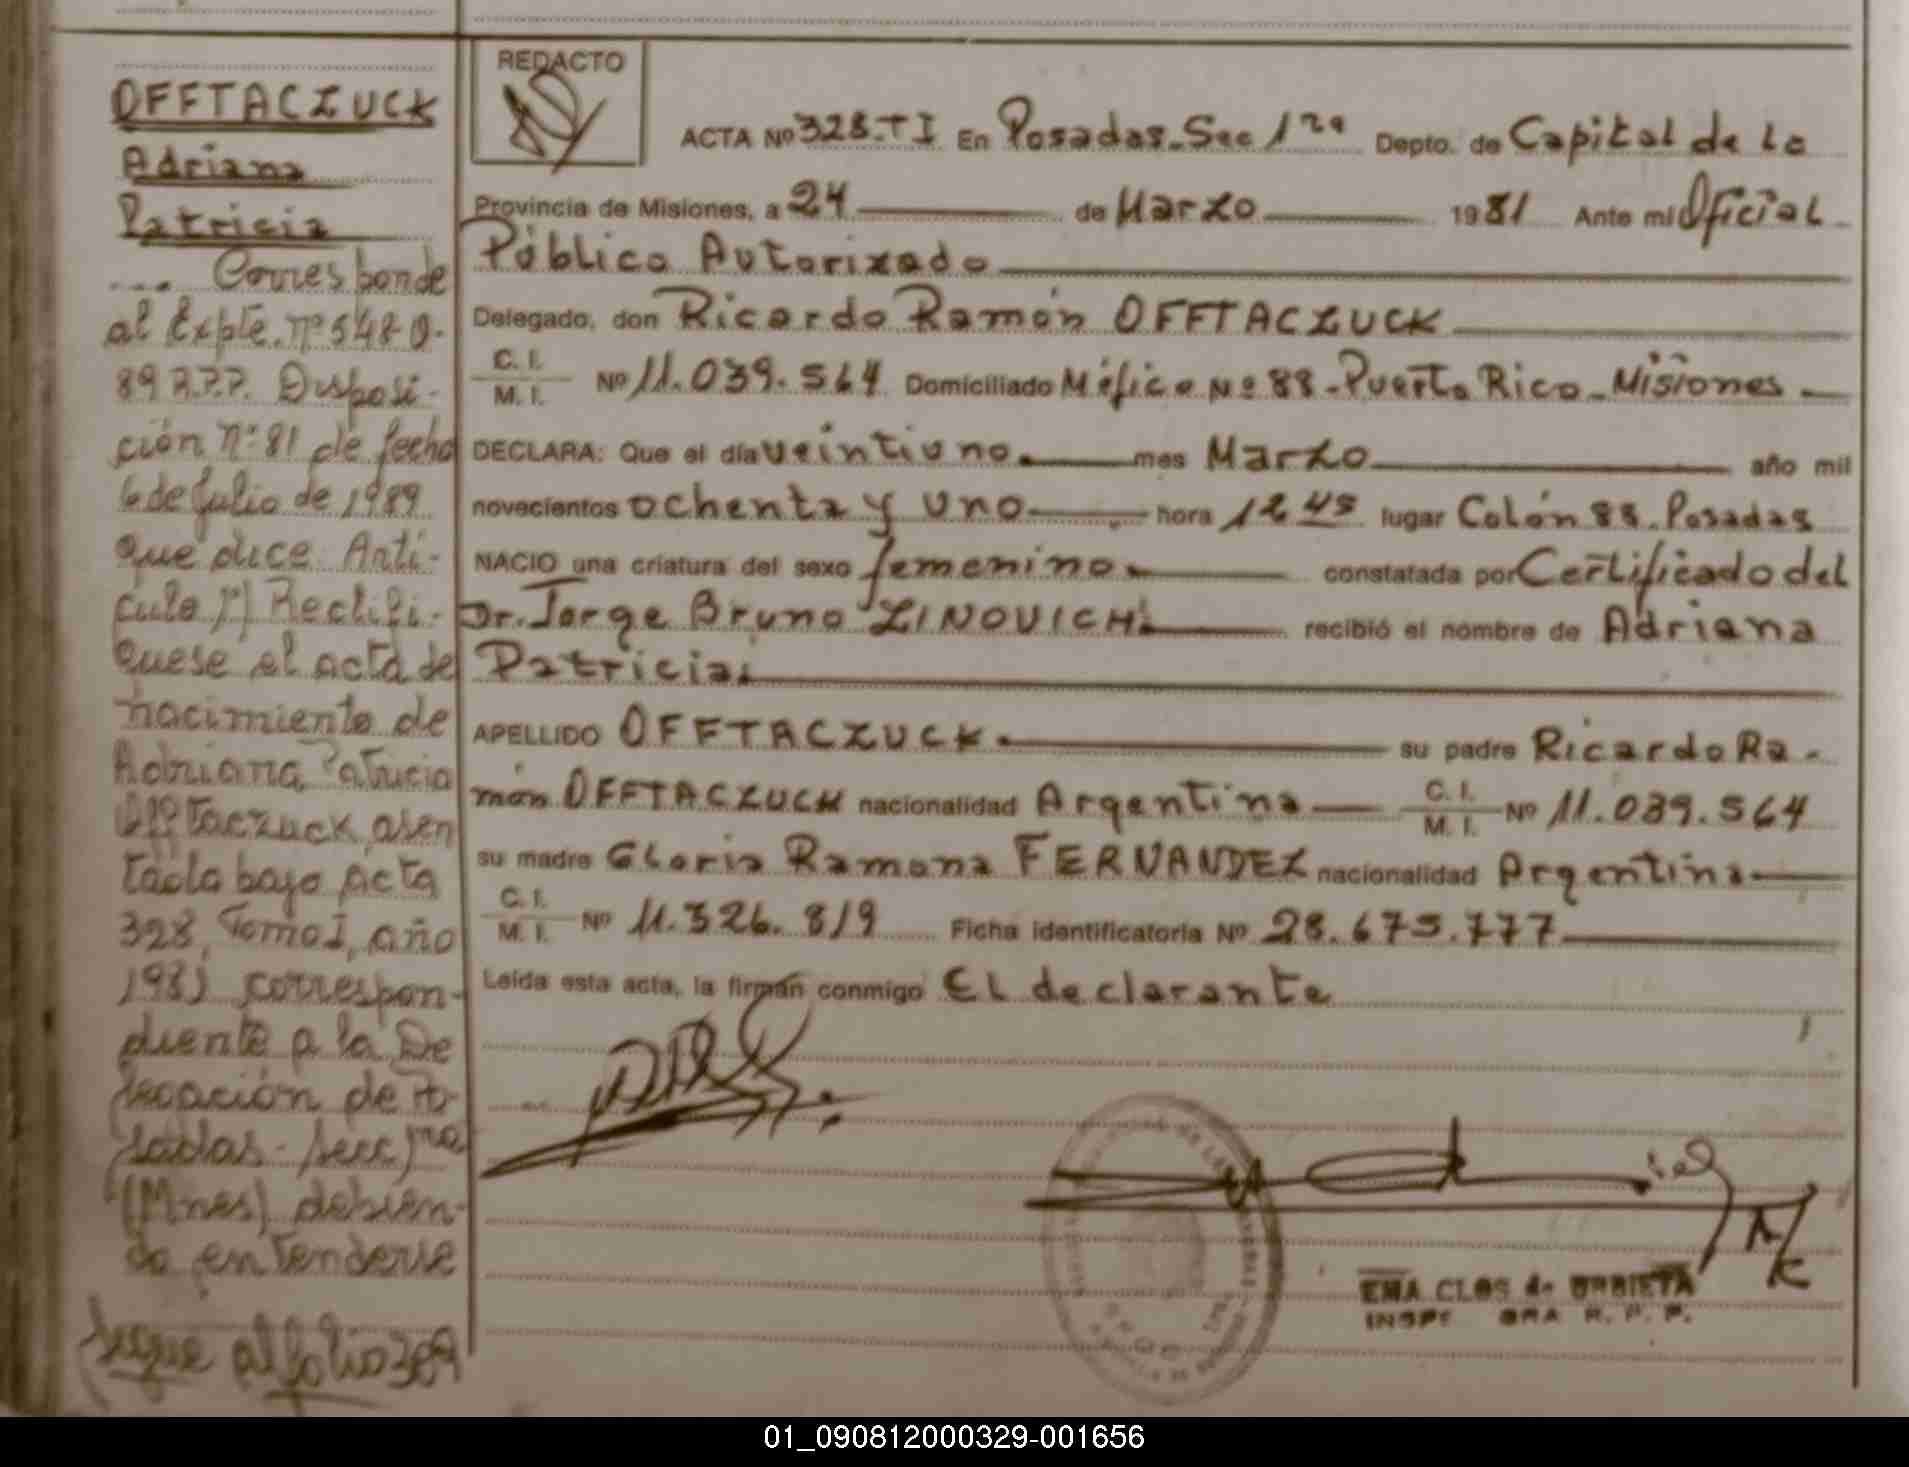 OFFTACZUCK
Adriana
Patricia
... Corresponde
al Expte. nº 548-0-
89 R.P.P. Disposi-
ción nº 81 de fecha
6 de Julio de 1989
que dice: Artí-
culo 1º) Rectifí-
quese el acta de
nacimiento de
Adriana Patricia
Offtaczuck, asen
tada bajo acta
328, Tomo I, año
1981 correspon-
diente a la De
legación de Po-
sadas - Secc 1ra
(Mnes) debien-
do entenderse
sigue al folio 389
REDACTO
ACTA Nº 328.TI En Posadas.Sec 1ra Depto. de Capital de la
Provincia de Misiones, a 24 de Marzo 1981 Ante mi Oficial
Público Autorizado
Delegado, don Ricardo Ramón OFFTACZUCK
C. I.
M. I. Nº 11.039.564 Domiciliado Méjico Nº 88-Puerto Rico-Misiones
DECLARA: Que el día veintiuno mes Marzo año mil
novecientos ochenta y uno hora 12 45 lugar Colón 88.Posadas
NACIO una criatura del sexo femenino constatada por Certificado del
Dr. Jorge Bruno ZINOVICH recibió el nombre de Adriana
Patricia
APELLIDO OFFTACZUCK. su padre Ricardo Ra-
món OFFTACZUCK nacionalidad Argentina C. I. M. I. Nº 11.039.564
su madre Gloria Ramona FERNANDEZ nacionalidad Argentina
C. I.
M. I. Nº 11.326.819 Ficha identificatoria Nº 28.675.777
Leída esta acta, la firman conmigo El declarante
EMA CLOS de URBIETA
INSPE ORA R. P. P.
01_090812000329-001656